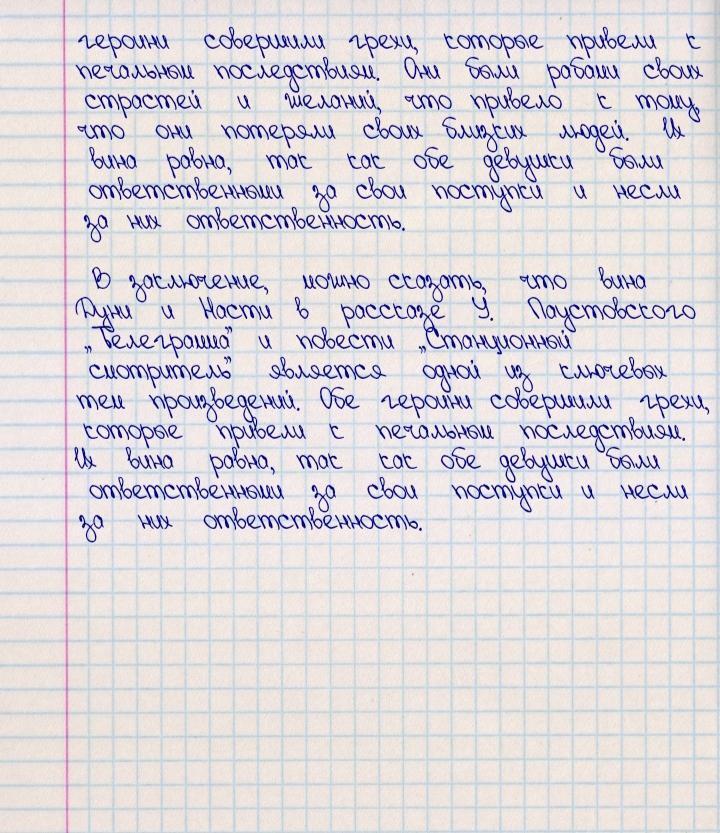 героини совершили грехи, которые привели к
печальным последствиям. Они были рабами своих
страстей и желаний, что привело к тому,
что они потеряли своих близких людей. Их
вина равна, так как обе девушки были
ответственными за свои поступки и несли
за них ответственность.
В заключение, можно сказать, что вина
Дуни и Насти в рассказе У. Паустовского
„Телеграмма” и повести „Станционный
смотритель” является одной из ключевых
тем произведений. Обе героини совершили грехи,
которые привели к печальным последствиям.
Их вина равна, так как обе девушки были
ответственными за свои поступки и несли
за них ответственность.